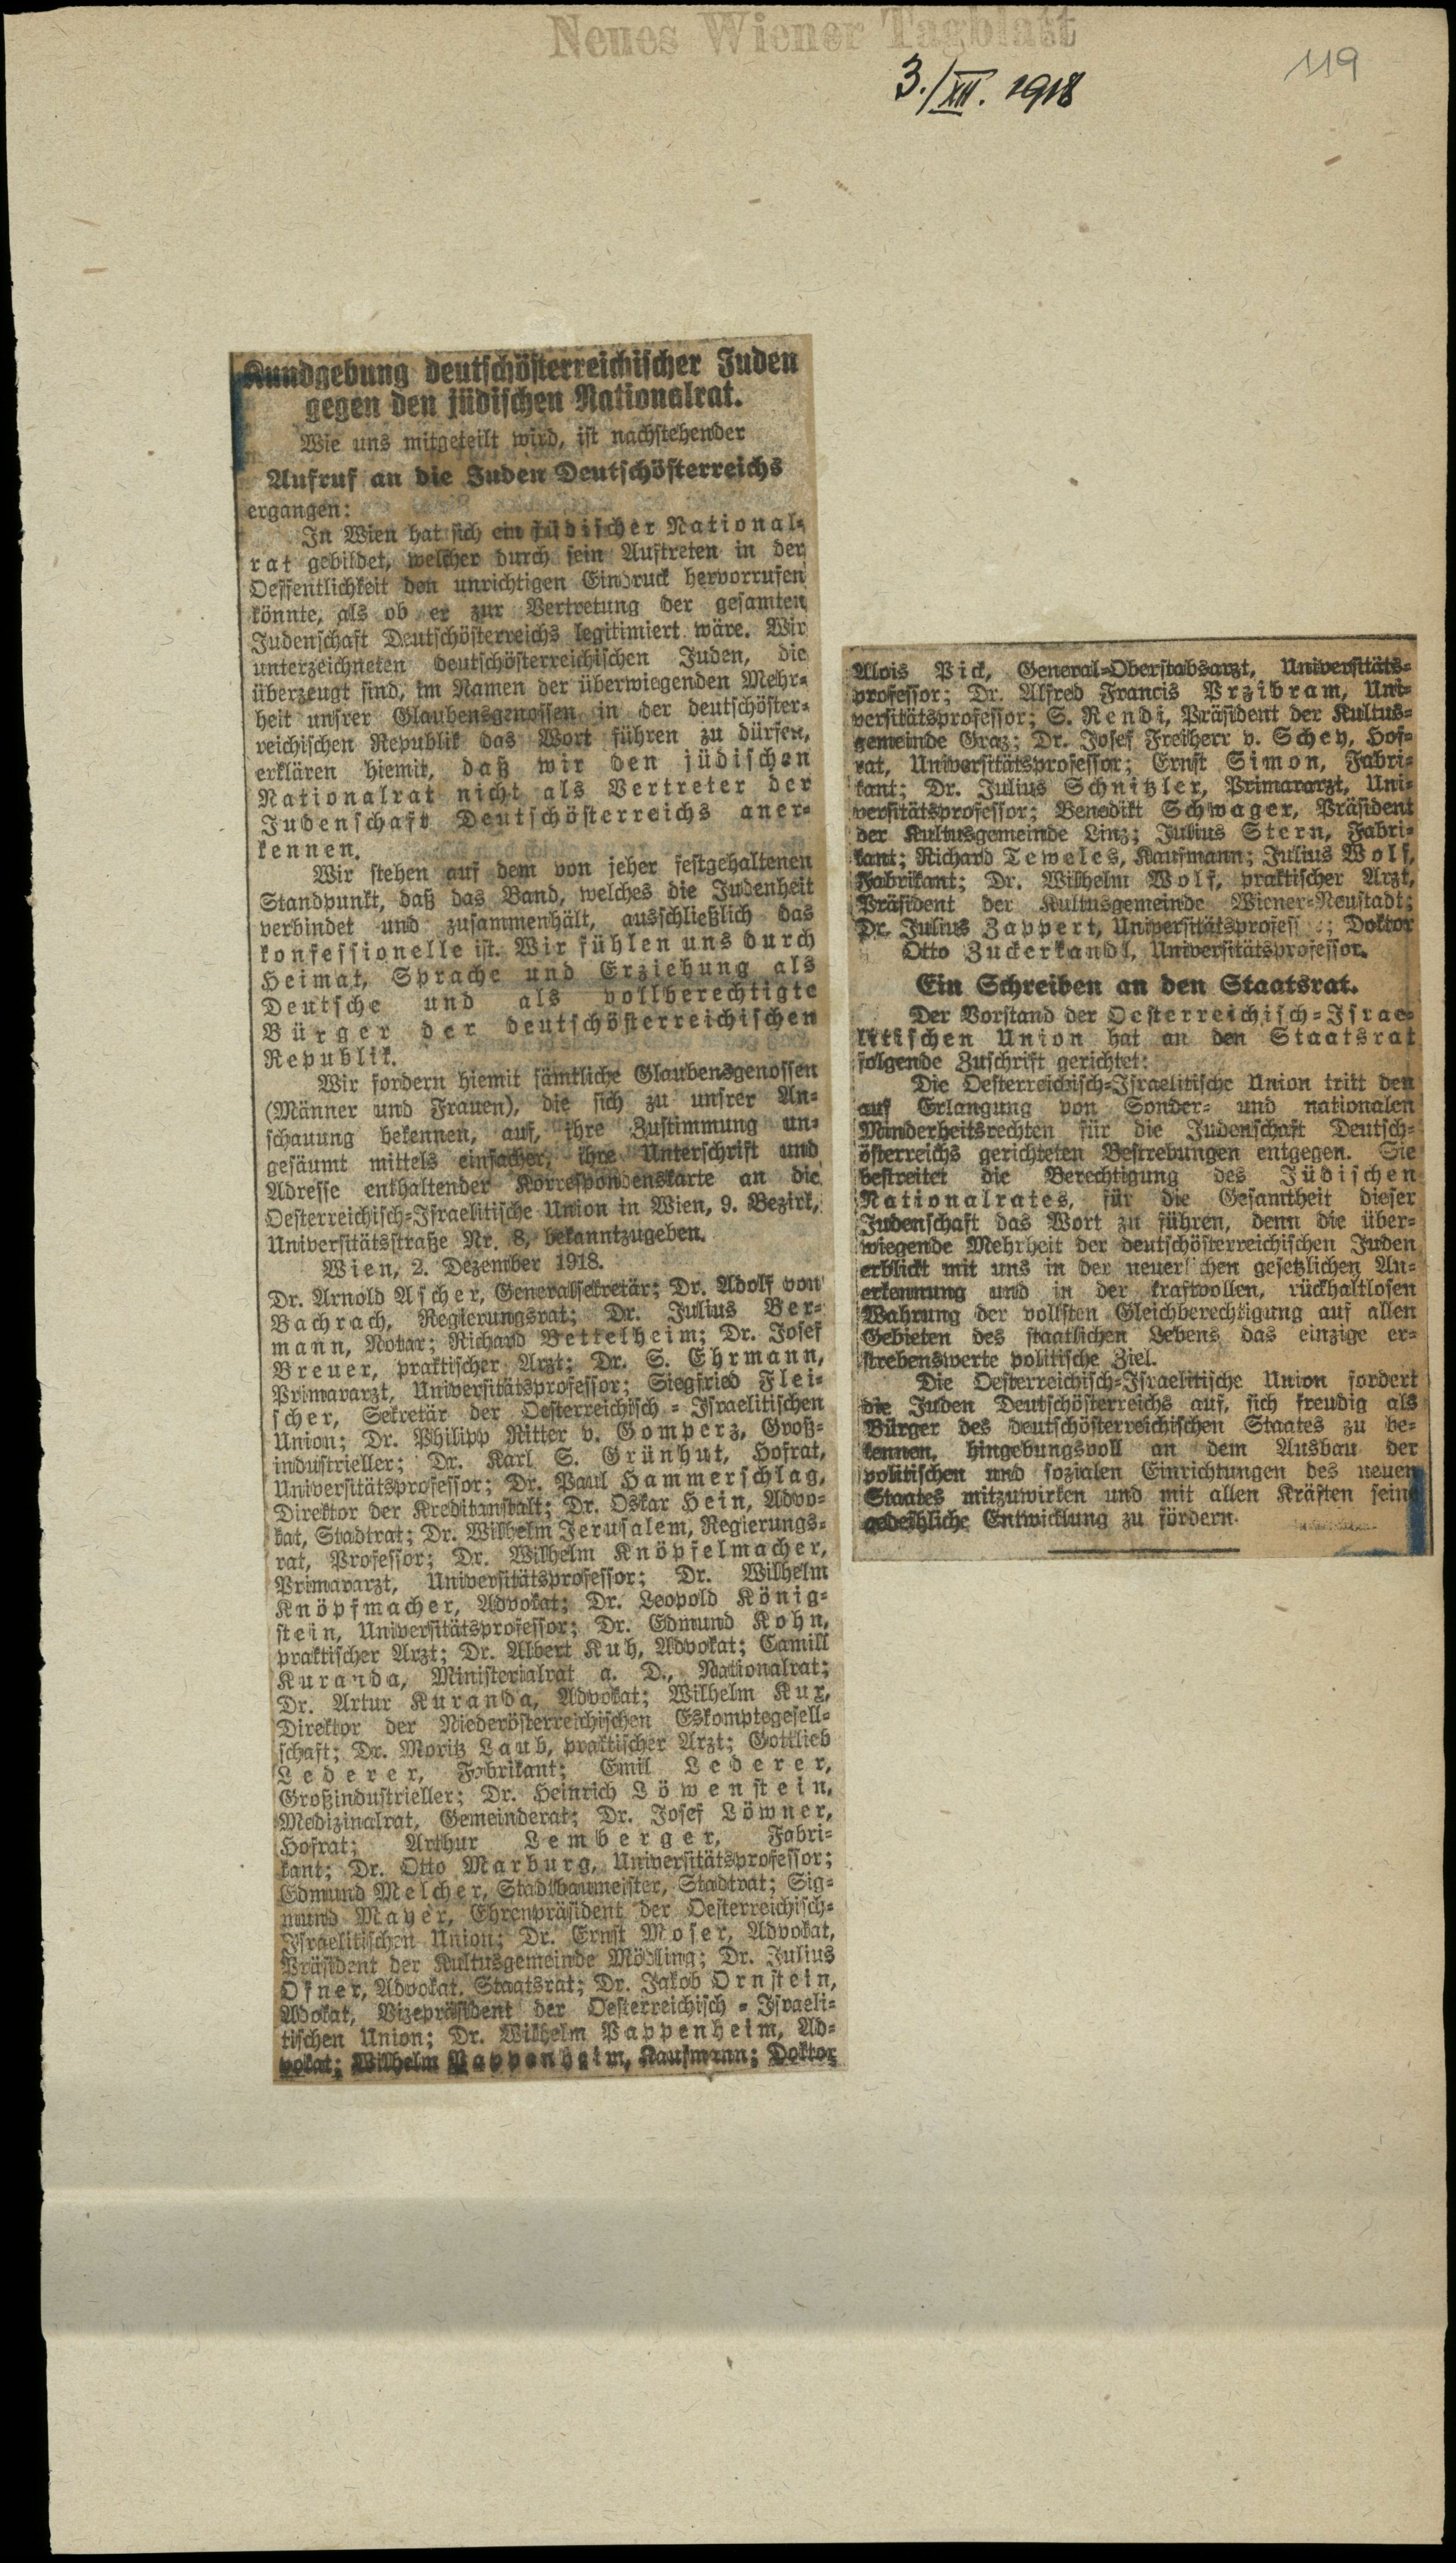 Neues Wiener Tagblatt
3./XII. 1918
119
Kundgebung deutschösterreichischer Juden
gegen den jüdischen Nationalrat.
Wie uns mitgeteilt wird, ist nachstehender
Aufruf an die Juden Deutschösterreichs
ergangen:
In Wien hat sich ein jüdischer National-
rat gebildet, welcher durch sein Auftreten in der
Oeffentlichkeit den unrichtigen Eindruck hervorrufen
könnte, als ob er zur Vertretung der gesamten
Judenschaft Deutschösterreichs legitimiert wäre. Wir
unterzeichneten deutschösterreichischen Juden, die
überzeugt sind, im Namen der überwiegenden Mehr-
heit unsrer Glaubensgenossen in der deutschöster-
reichischen Republik das Wort führen zu dürfen,
erklären hiemit, daß wir den jüdischen
Nationalrat nicht als Vertreter der
Judenschaft Deutschösterreichs aner-
kennen.
Wir stehen auf dem von jeher festgehaltenen
Standpunkt, daß das Band, welches die Judenheit
verbindet und zusammenhält, ausschließlich das
konfessionelle ist. Wir fühlen uns durch
Heimat, Sprache und Erziehung als
Deutsche und als vollberechtigte
Bürger der deutschösterreichischen
Republik.
Wir fordern hiemit sämtliche Glaubensgenossen
(Männer und Frauen), die sich zu unsrer An-
schauung bekennen, auf, ihre Zustimmung un-
gesäumt mittels einfacher, ihre Unterschrift und
Adresse enthaltender Korrespondenskarte an die
Oesterreichisch-Israelitische Union in Wien, 9. Bezirk,
Universitätsstraße Nr. 8, bekanntzugeben.
Wien, 2. Dezember 1918.
Dr. Arnold Ascher, Generalsekretär; Dr. Adolf von
Bachrach, Regierungsrat; Dr. Julius Ber-
mann, Notar; Richard Bettelheim; Dr. Josef
Breuer, praktischer Arzt; Dr. S. Ehrmann,
Primararzt, Universitätsprofessor; Siegfried Flei-
scher, Sekretär der Oesterreichisch-Israelitischen
Union; Dr. Philipp Ritter v. Gomperz, Groß-
industrieller; Dr. Karl S. Grünhut, Hofrat,
Universitätsprofessor; Dr. Paul Hammerschlag,
Direktor der Kreditanstalt; Dr. Oskar Hein, Advo-
kat, Stadtrat; Dr. Wilhelm Jerusalem, Regierungs-
rat, Professor; Dr. Wilhelm Knöpfelmacher,
Primararzt, Universitätsprofessor; Dr. Wilhelm
Knöpfmacher, Advokat; Dr. Leopold König-
stein, Universitätsprofessor; Dr. Edmund Kohn,
praktischer Arzt; Dr. Albert Kuh, Advokat; Camill
Kuranda, Ministerialrat a. D., Nationalrat;
Dr. Artur Kuranda, Advokat; Wilhelm Kux,
Direktor der Niederösterreichischen Eskomptegesell-
schaft; Dr. Moritz Laub, praktischer Arzt; Gottlieb
Lederer, Fabrikant; Emil Lederer,
Großindustrieller; Dr. Heinrich Löwenstein,
Medizinalrat, Gemeinderat; Dr. Josef Löwner,
Hofrat; Arthur Lemberger, Fabri-
kant; Dr. Otto Marburg, Universitätsprofessor;
Edmund Melcher, Stadtbaumeister, Stadtrat; Sig-
mund Mayer, Ehrenpräsident der Oesterreichisch-
Israelitischen Union; Dr. Ernst Moser, Advokat,
Präsident der Kultusgemeinde Mödling; Dr. Julius
Ofner, Advokat, Staatsrat; Dr. Jakob Ornstein,
Advokat, Vizepräsident der Oesterreichisch-Israeli-
tischen Union; Dr. Wilhelm Pappenheim, Ad-
vokat; Wilhelm Pappenheim, Kaufmann; Doktor
Alois Pick, General-Oberstabsarzt, Universitäts-
professor; Dr. Alfred Francis Przibram, Uni-
versitätsprofessor; S. Rendi, Präsident der Kultus-
gemeinde Graz; Dr. Josef Freiherr v. Schey, Hof-
rat, Universitätsprofessor; Ernst Simon, Fabri-
kant; Dr. Julius Schnitzler, Primararzt, Uni-
versitätsprofessor; Benedikt Schwager, Präsident
der Kultusgemeinde Linz; Julius Stern, Fabri-
kant; Richard Teweles, Kaufmann; Julius Wolf,
Fabrikant; Dr. Wilhelm Wolf, praktischer Arzt,
Präsident der Kultusgemeinde Wiener-Neustadt;
Dr. Julius Zappert, Universitätsprofess ; Doktor
Otto Zuckerkandl, Universitätsprofessor.
Ein Schreiben an den Staatsrat.
Der Vorstand der Oesterreichisch-Israe-
litischen Union hat an den Staatsrat
folgende Zuschrift gerichtet:
Die Oesterreichisch-Israelitische Union tritt den
auf Erlangung von Sonder- und nationalen
Minderheitsrechten für die Judenschaft Deutsch-
österreichs gerichteten Bestrebungen entgegen. Sie
bestreitet die Berechtigung des Jüdischen
Nationalrates, für die Gesamtheit dieser
Judenschaft das Wort zu führen, denn die über-
wiegende Mehrheit der deutschösterreichischen Juden
erblickt mit uns in der neuerlichen gesetzlichen An-
erkennung und in der kraftvollen, rückhaltlosen
Wahrung der vollsten Gleichberechtigung auf allen
Gebieten des staatlichen Lebens das einzige er-
strebenswerte politische Ziel.
Die Oesterreichisch-Israelitische Union fordert
die Juden Deutschösterreichs auf, sich freudig als
Bürger des deutschösterreichischen Staates zu be-
kennen, hingebungsvoll an dem Ausbau der
politischen und sozialen Einrichtungen des neuen
Staates mitzuwirken und mit allen Kräften seine
gedeihliche Entwicklung zu fördern.